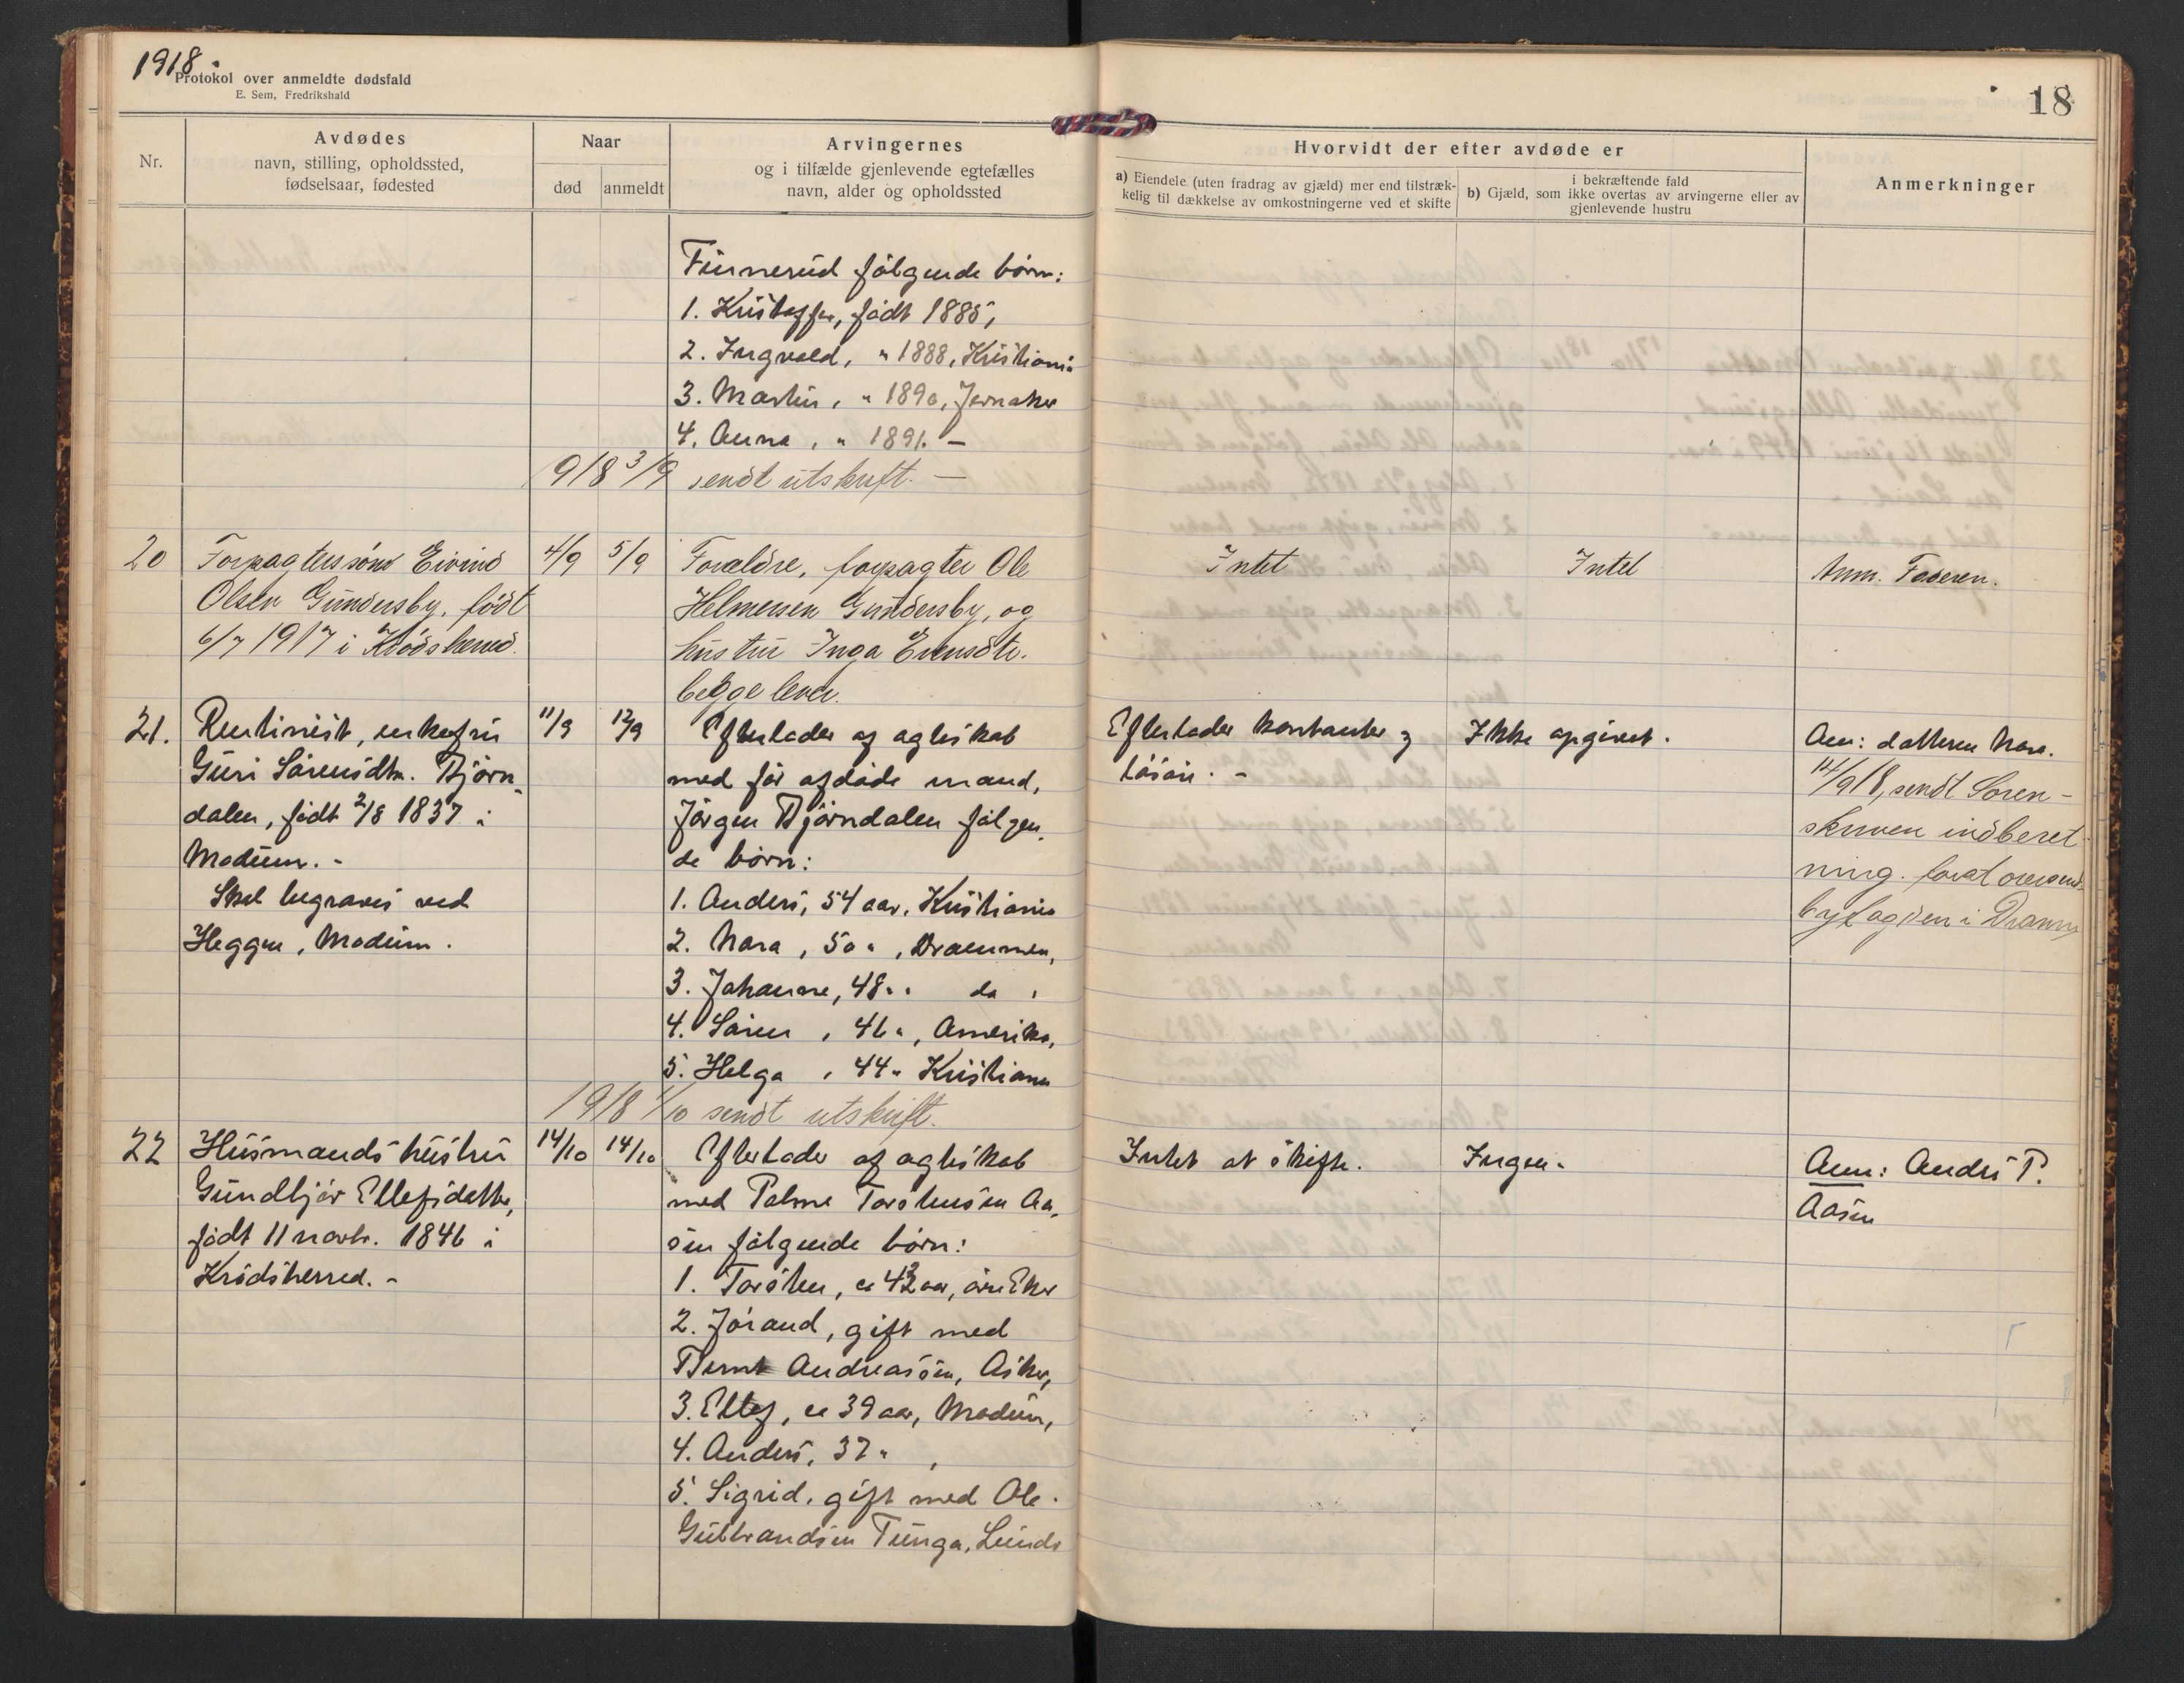 1918.
Protokol over anmeldte dødsfald
E. Sem, Fredrikshald
18
Nr.
Avdødes
navn, stilling, opholdssted,
fødselsaar, fødested
Naar
død
anmeldt
Arvingernes
og i tilfælde gjenlevende egtefælles
navn, alder og opholdssted
Hvorvidt der efter avdøde er
a) Eiendele (uten fradrag av gjæld) mer end tilstræk-
kelig til dækkelse av omkostningerne ved et skifte
i bekræftende fald
b) Gjæld, som ikke overtas av arvingerne eller av
gjenlevende hustru
Anmerkninger
Finnerud følgende børn:
1. Kristoffer, født 1885,
2. Ingvald, " 1888, Kristiania
3. Martin, " 1890, Jevnaker
4. Anna, " 1891. -
1918 3/9 sendt utskrift. -
20
Forpagterssøns Eivind
Olsen Gundersby, født
6/7 1917 i Krødsherred.
4/9
5/9
Forældre, forpagter Ole
Helmersen Gundersby, og
hustru Inga Evensdtr.
begge lever.
Intet
Intet
Anm. Faderen.
21.
Rentinist, enkefru
Guri Sørensdtr. Bjørn-
dalen, født 2/8 1837 i
Modum. -
Skal begraves ved
Heggen, Modum.
11/9
12/9
Efterlader af egteskab
med før afdøde mand,
Jørgen Bjørndalen følgen-
de børn:
1. Anders, 54 aar, Kristiania
2. Nora, 50 ", Drammen,
3. Johanne, 48 " do,
4. Søren, 46 ", Amerika,
5. Helga, 44 " Kristiania
1918 1/10 sendt utskrift.
Efterlader kontanter og
løsøre. -
Ikke opgivet.
Anm: datteren Nora.
14/918, sendt Soren-
skriven indberet-
ning.
byfogden i Dramm
22
Husmandshustru
Gundbjør Ellefsdatter,
født 11 novbr. 1846 i
Krødsherred. -
14/10
14/10
Efterlader af egteskab
med Palme Torstensen Aa-
sen følgende børn:
1. Torsten, ca 43 aar, øvre Eker
2. Jørand, gift med
Bernt Andreassen, Asker,
3. Ellef, ca 39 aar, Modum,
4. Anders, 37 ",
5. Sigrid, gift med Ole
Gulbrandsen Tunga, Lunds
Intet at skifte.
Ingen.
Anm: Anders P.
Aasen